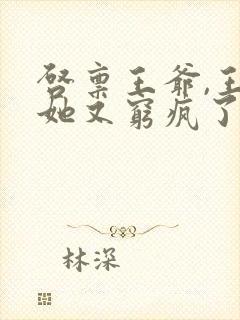 启禀王爷,王
她又窮疯了
林深